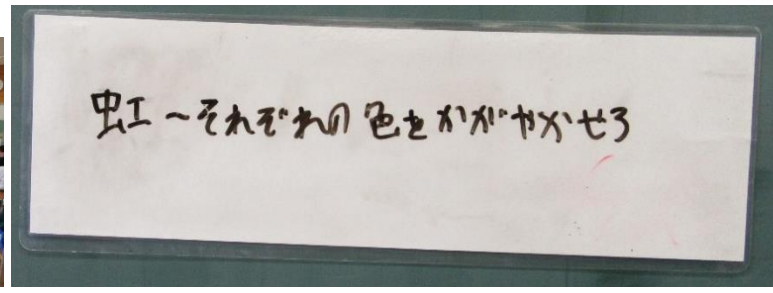 虹～それぞれの色をかがやかせろ